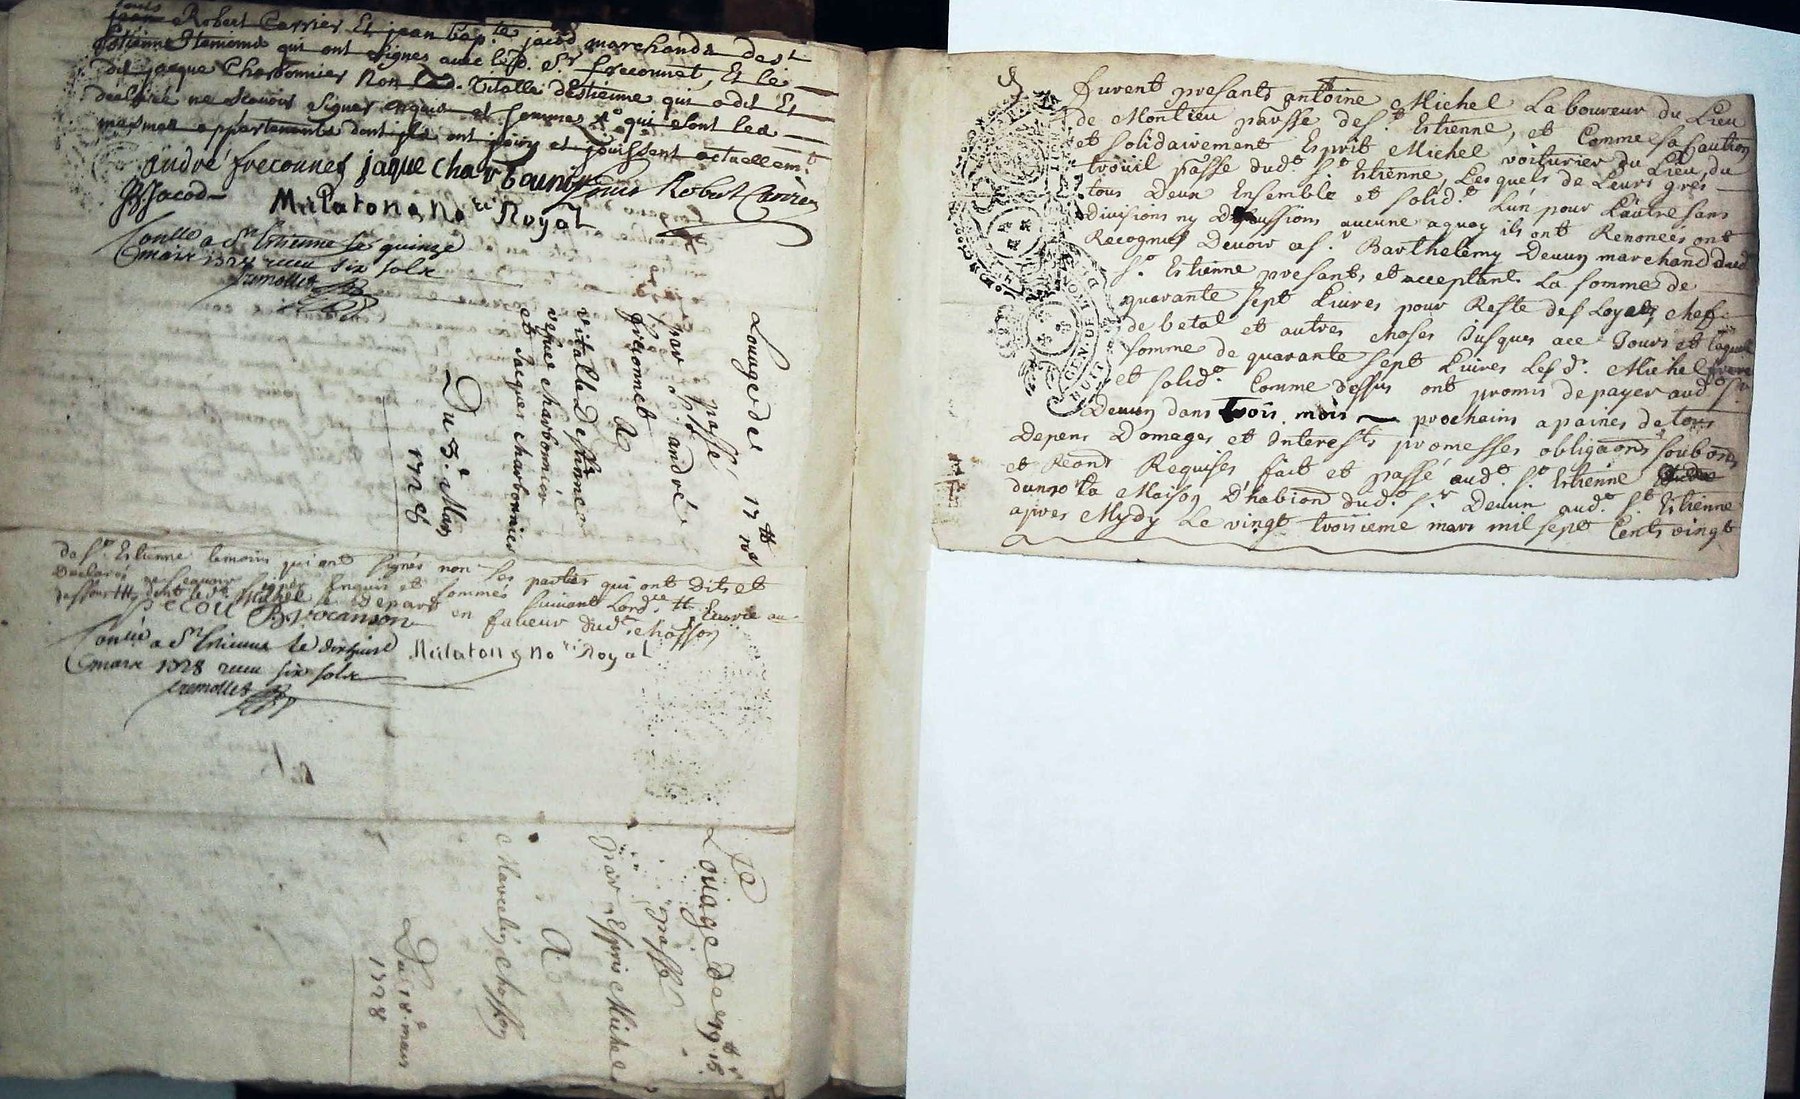 Robert Carrier Et jean bap.te jacod marchands de st
Estienne qui ont signes avec led. Sr frecounet, Et le
dit jacque Charbonnier Non lad. Vitalle dEstienne qui a dit Et
declaré ne scavoir signer enquis et sommes qui Sont les
mesmes appartements dont ils ont jouiy et jouissent actuellemt
andré frecounet jaque Charbounier Louis Robert Carrier
JBJacod Mulaton No.re Royal
Conllé a St Estienne le quinze
mars 1728 receu six sols
tremollet
Louage de 17tt 10s
passé
par Sr andré
friconnet
A
vitalle destienne
vefue charbonnier
et Jacques charbonnier
Du 3e Mars
1728
de St Estienne temoins qui ont signés non les parties qui ont Dits et
Declarés ne scavoir signer Enquis et sommés suivant Lord.ce
en faveur dud. chosson
B. vocanson
Con.llé a St Estienne le dixhuit
mars 1728 receu six sols
Mulaton No.re Royal
tremollet
Louage de
passé
par Esprit Michel
A
Marcelin chosson
Du 18e mars
1728
furent presants antoine Michel Laboureur du Lieu
de Montieu parsse de St Estienne, et Comme sa Caution
et solidairement Esprit Michel voiturier du Lieu du
trouil passe dud. St Estienne, Lesquels de Leurs grés
tous Deux Ensemble et solid.t Lún pour Láutre sans
divisions ny Discussions aucune aquoy ils ont Renoncés ont
Recognus Devoir a Sr Barthelemy Devun marchand dud.
St Estienne presants et acceptant La somme de
quarante sept Livres pour Reste des Loyals chef
de betal et autres choses Jusques ace Jours et laquelle
somme de quarante sept Livres Lesd. Michel frere
et solid.t Comme dessus ont promis de payer aud. Sr
Devun dans trois mois prochains a paines de tous
Depens Domages et Interests promesses obligaons soubons
et Reons Requises fait et passé aud. St Estienne
dans La Maison D'habiaon dud. Sr Devun aud. St Estienne
apres Mydy Le vingt troisieme mars mil sept Cents vingt